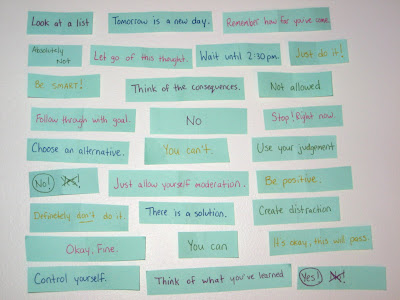 Look at a list
Tomorrow is a new day.
Remember how far you've come.
Absolutely
Not
Let go of this thought.
Wait until 2:30pm.
Just do it!
Be SMART!
Think of the consequences.
Not allowed
Follow through with goal.
No
Stop! Right now.
Choose an alternative.
You can't.
Use your judgement
No! Yes!
Just allow yourself moderation.
Be positive.
Definitely don't do it.
There is a solution.
Create distraction
Okay, Fine.
You can
It's okay, this will pass.
Control yourself.
Think of what you've learned
Yes! No!